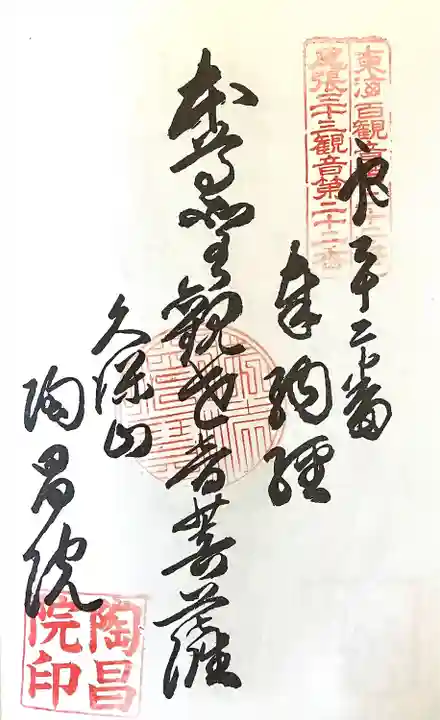 東海百観音
尾張三十三観音第二十二番
第二十二番
奉納経
本尊聖観世音菩薩
久保山
陶昌院
陶昌院印